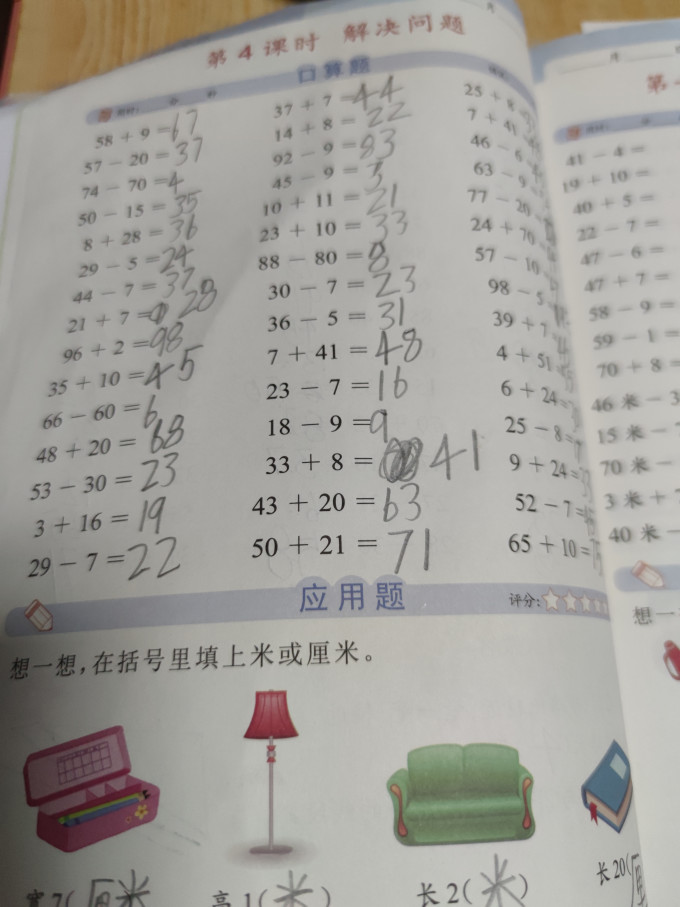 第4课时 解决问题
口算题
58 + 9 = 67
57 − 20 = 37
74 − 70 = 4
50 − 15 = 35
8 + 28 = 36
29 − 5 = 24
44 − 7 = 37
21 + 7 = 28
96 + 2 = 98
35 + 10 = 45
66 − 60 = 6
48 + 20 = 68
53 − 30 = 23
3 + 16 = 19
29 − 7 = 22
37 + 7 = 44
14 + 8 = 22
92 − 9 = 83
45 − 9 = 3
10 + 11 = 21
23 + 10 = 33
88 − 80 = 8
30 − 7 = 23
36 − 5 = 31
7 + 41 = 48
23 − 7 = 16
18 − 9 = 9
33 + 8 = 41
43 + 20 = 63
50 + 21 = 71
25 + 8
7 + 41
46 − 6
63 − 9
77 − 20
24 + 70
57 − 10
98 − 5
39 + 7
4 + 51
6 + 24 =
25 − 8 =
9 + 24 =
52 − 7 =
65 + 10 =
应用题
评分:
想一想,在括号里填上米或厘米。
宽7(厘米
高1(米)
长2(米)
长20(厘
月
第
41 − 4 =
19 + 10 =
40 + 5 =
22 − 7 =
47 − 6 =
47 + 7 =
58 − 9 =
59 − 1 =
70 + 8 =
46米 − 3
15米 −
70米 −
3米 +
40米 −
想一